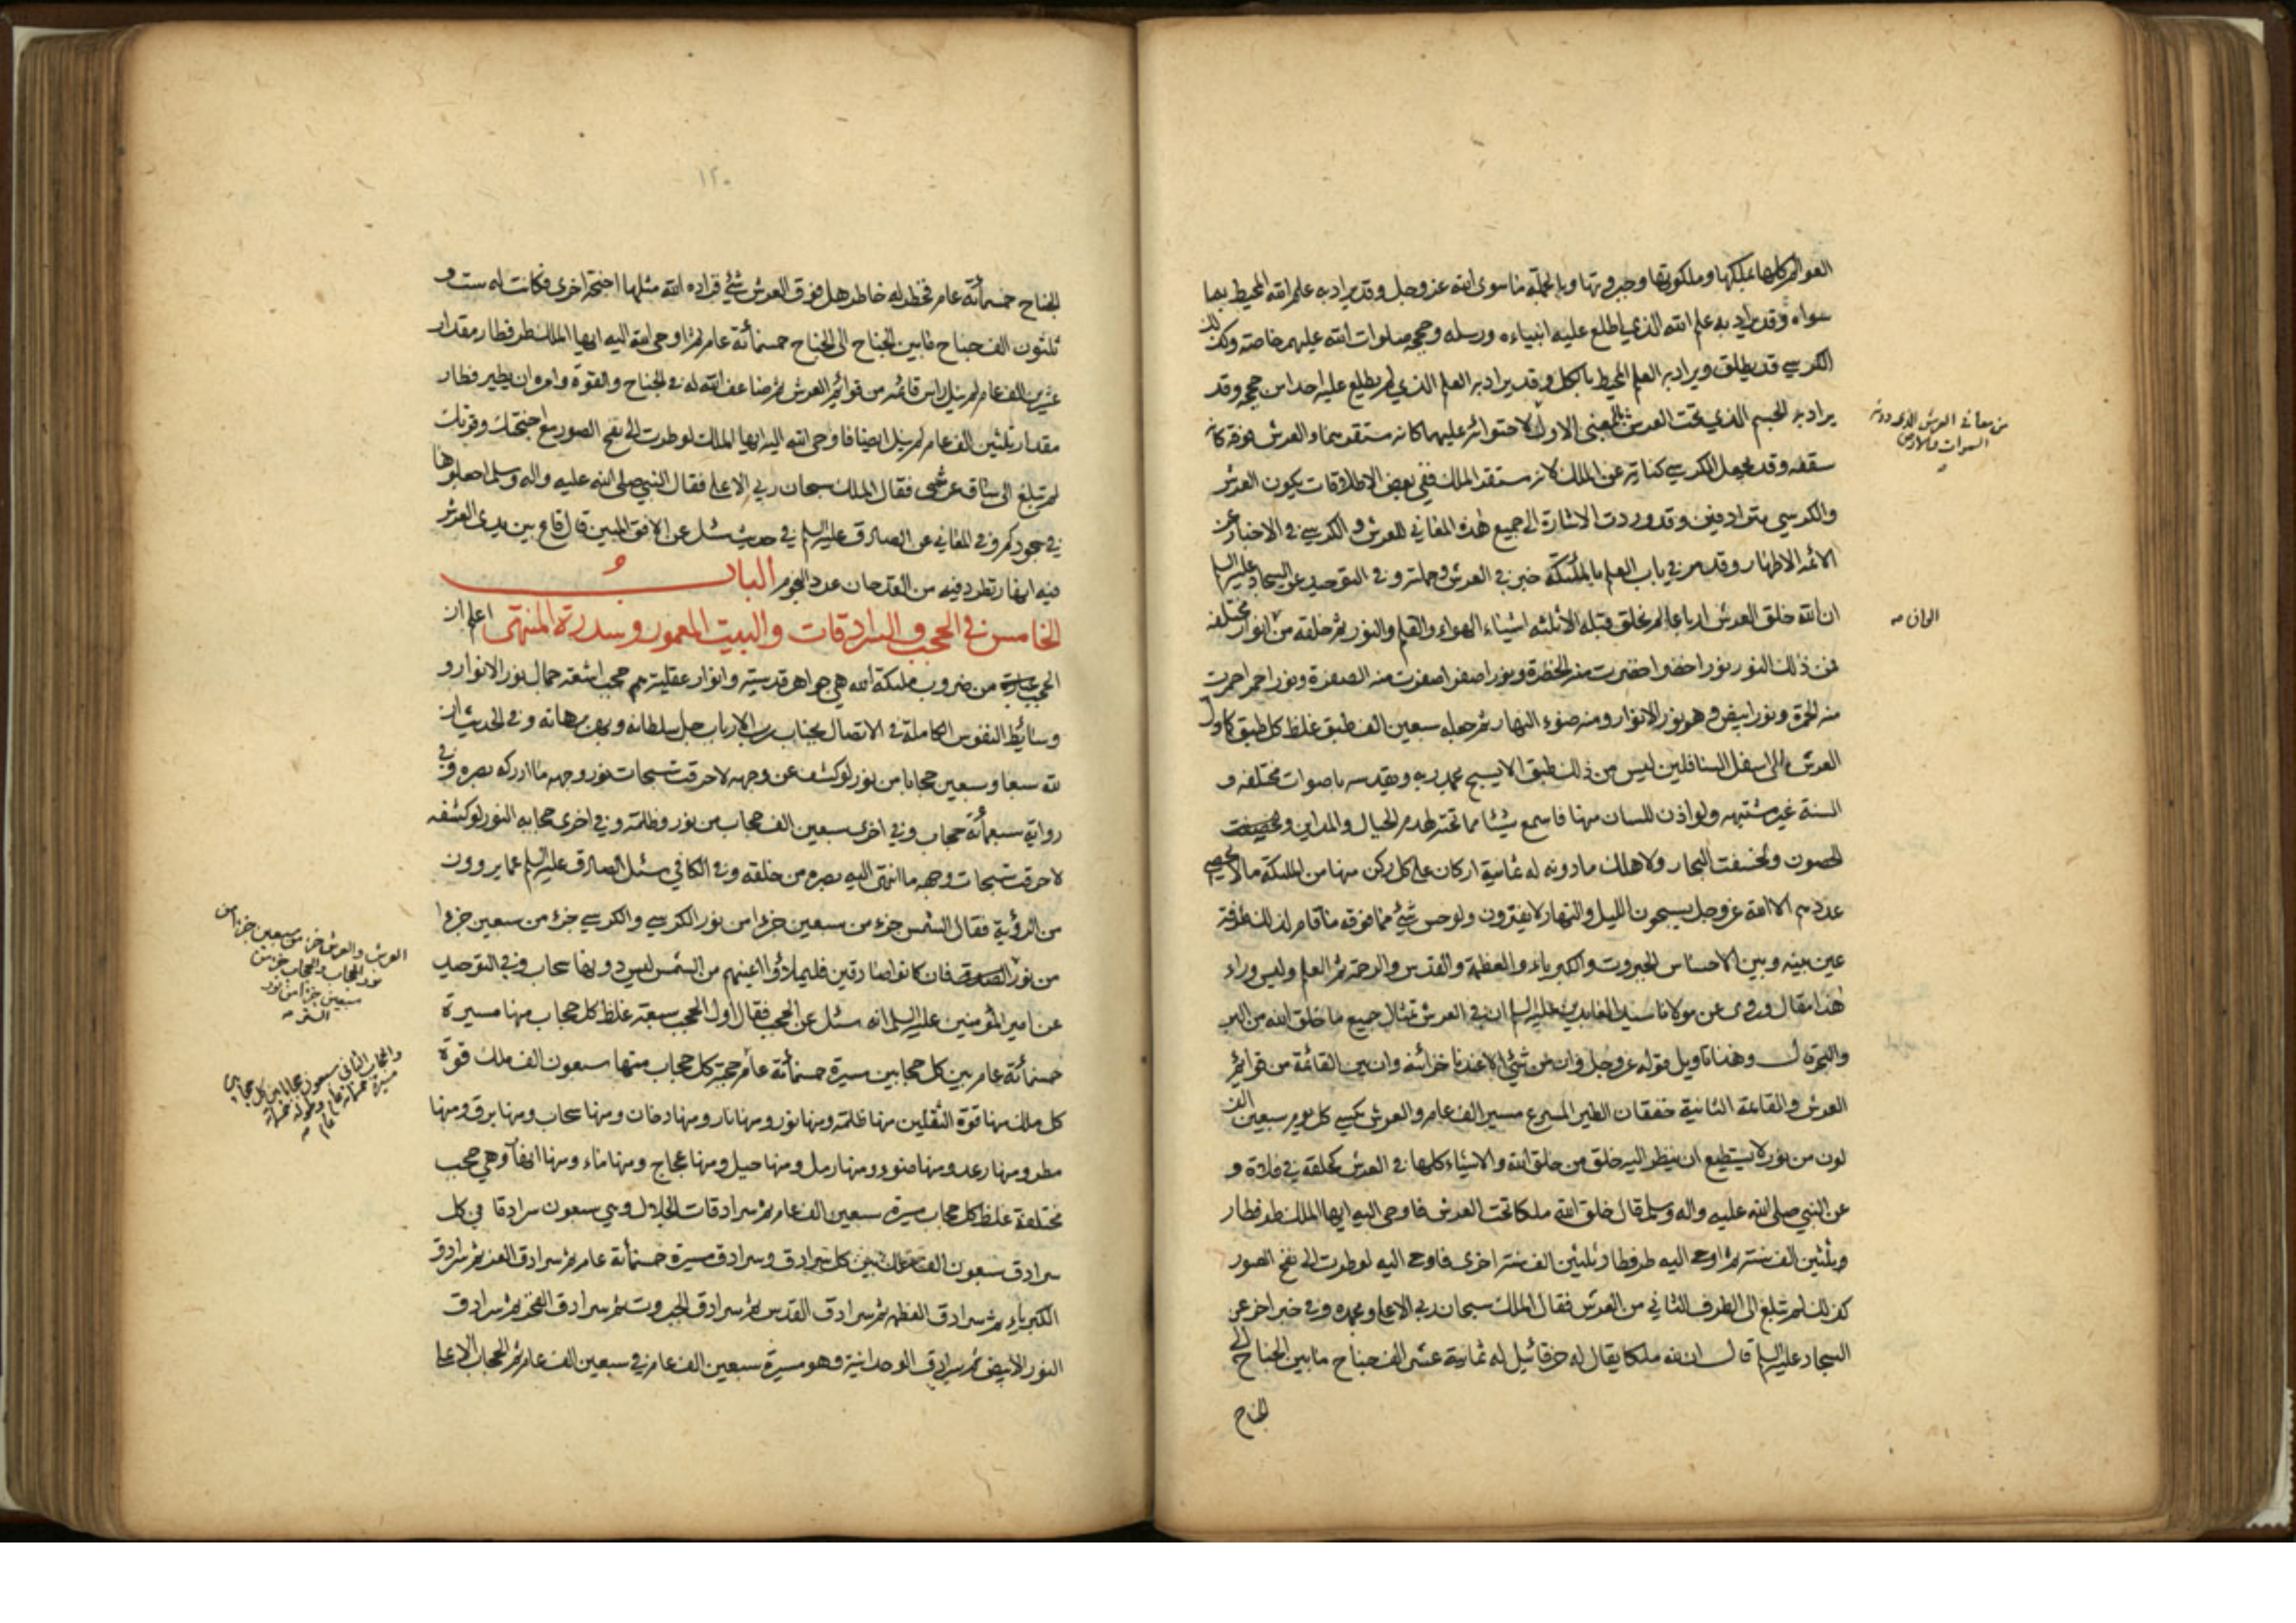 العوالم كلها بملكها وملكوتها وجبروتها وبالجملة ما سوى الله عز وجل وقد يراد به علم الله المحيط بما
سواه وقد يراد به علم الله الذي اطلع عليه انبياءه ورسله وحججه صلوات الله عليهم خاصة وكذلك
الكرسي قد يطلق ويراد به العلم المحيط بالكل وقد يراد به العلم الذي لم يطلع عليه احدا من حججه وقد
يراد به الجسم الذي تحت العرش بالمعنى الاول لاحتوائه عليهما كانه مستقرهما والعرش فوقه كانه
سقفه وقد يجعل الكرسي كناية عن الملك لانه مستقر الملك ففي بعض الاطلاقات يكون العرش
والكرسي مترادفين وقد وردت الاشارة الى جميع هذه المعاني للعرش والكرسي في الاخبار عن
الائمة الاطهار وقد مر في باب العلم بالملئكة خبر في العرش وحملته وفي التوحيد عن السجاد عليه السلم
ان الله خلق العرش ارباعا لم يخلق قبله الا ثلثه اشياء الهواء والقلم والنور ثم خلقه من انوار مختلفه
فمن ذلك النور نور اخضر اخضرت منه الخضرة ونور اصفر اصفرت منه الصفرة ونور احمر احمرت
منه الحمرة ونور ابيض وهو نور الانوار ومنه ضوء النهار ثم جعله سبعين الف طبق غلظ كل طبق كاول
العرش الى اسفل السافلين ليس من ذلك طبق الا يسبح بحمد ربه ويقدسه باصوات مختلفه و
السنة غير مشتبهه ولو اذن للسان منها فاسمع شيئا مما تحته لهدم الجبال والمداين و
الحصون ولخسفت البحار ولاهلك ما دونه له ثمانية اركان على كل ركن منها من الملئكة ما لا يحصي
عددهم الا الله عز وجل يسبحون الليل والنهار لا يفترون ولو حس شيئ مما فوقه ما قام لذلك طرفة
عين بينه وبين الاحساس الجبروت والكبرياء والعظمة والقدس والرحمة ثم العلم وليس وراء
هذا مقال وروى عن مولانا سيد العابدين عليه السلم ان في العرش تمثال جميع ما خلق الله من البر
والبحر قال وهذا تاويل قوله عز وجل وان من شيئ الا عندنا خزائنه وان بين القائمة من قوائم
العرش والقائمة الثانية خفقان الطير المسرع مسير الف عام والعرش يكسى كل يوم سبعين الف
لون من نور لا يستطيع ان ينظر اليه خلق من خلق الله والاشياء كلها في العرش كحلقه في فلاة و
عن النبي صلى الله عليه واله وسلم قال خلق الله ملكا تحت العرش فاوحى اليه ايها الملك طر فطار
وثلثين الف سنة ثم اوحى اليه طر فطار ثلثين الف سنة اخرى فاوحى اليه لو طرت الى نفخ الصور
كذلك لم تبلغ الى الطرف الثاني من العرش فقال الملك سبحان ربي الاعلى وبحمده وفي خبر اخر عن
السجاد عليه السلم قال ان لله ملكا يقال له خرقائيل له ثمانية عشر الف جناح ما بين الجناح الى
الجناح
من معاني العرش الذي دونه
السموات والارض
١٢٠
الجناح خمسمائة عام فخطر له خاطر هل فوق العرش شيئ فزاده الله مثلها اجنحة اخرى فكانت له ست و
ثلثون الف جناح ما بين الجناح الى الجناح خمسمائة عام ثم اوحى الله اليه ايها الملك طر فطار مقدار
عشرين الف عام لم ينل راس قائمة من قوائم العرش ثم ضاعف الله له في الجناح والقوة وامره ان يطير فطار
مقدار ثلثين الف عام لم ينل ايضا فاوحى الله اليه ايها الملك لو طرت الى نفخ الصور مع اجنحتك وقوتك
لم تبلغ الى ساق عرشي فقال الملك سبحان ربي الاعلى فقال النبي صلى الله عليه واله وسلم اجعلوها
في سجودكم وفي المعاني عن الصادق عليه السلم في حديث سئل عن الافق المبين قال قاع بين يدي العرش
فيه انهار تطرد فيه من القدحان عدد النجوم الباب
الخامس في الحجب والسرادقات والبيت المعمور وسدرة المنتهى اعلم ان
الحجب عبارة من ضروب ملئكة الله هي جواهر قدسية وانوار عقلية هم حجب اشعة جمال نور الانوار و
وسائط النفوس الكاملة في الاتصال بجناب رب الارباب جل سلطانه وبهر برهانه وفي الحديث ان
لله سبعا وسبعين حجابا من نور لو كشف عن وجهه لاحرقت سبحات نور وجهه ما ادركه بصره وفي
رواية سبعمأة حجاب وفي اخرى سبعين الف حجاب من نور وظلمة وفي اخرى حجابه النور لو كشفه
لاحرقت سبحات وجهه ما انتهى اليه بصره من خلقه وفي الكافي سئل الصادق عليه السلم عما يروون
من الرؤية فقال الشمس جزء من سبعين جزءا من نور الكرسي والكرسي جزء من سبعين جزءا
من نور فان كانوا صادقين فليملاؤا اعينهم من الشمس ليس دونها سحاب وفي التوحيد
عن امير المؤمنين عليه السلم انه سئل عن الحجب فقال اول الحجب سبعة غلظ كل حجاب منها مسيرة
خمسمأة عام بين كل حجابين مسيرة خمسمأة عام حجبة كل حجاب منها سبعون الف ملك قوة
كل ملك منها قوة الثقلين منها ظلمة ومنها نور ومنها نار ومنها دخان ومنها سحاب ومنها برق ومنها
مطر ومنها رعد ومنها ضوء ومنها رمل ومنها جبل ومنها عجاج ومنها ماء ومنها انهار وهي حجب
مختلفة غلظ كل حجاب مسيرة سبعين الف عام ثم سرادقات الجلال وهي سبعون سرادقا في كل
سرادق سبعون الف ملك بين كل سرادق وسرادق مسيرة خمسمأة عام ثم سرادق العز ثم سرادق
الكبرياء ثم سرادق العظمة ثم سرادق القدس ثم سرادق الجبروت ثم سرادق الفخر ثم سرادق
النور الابيض ثم سرادق الوحدانية وهو مسيرة سبعين الف عام في سبعين الف عام ثم الحجاب الاعلى
العرش والعرش جزء من سبعين جزءا من
نور الحجاب والحجاب جزء من
سبعين جزءا من نور
الستر
والحجاب الثاني سبعون حجابا بين كل حجابين
مسيرة خمسمأة عام وطوله خمسمأة
عام